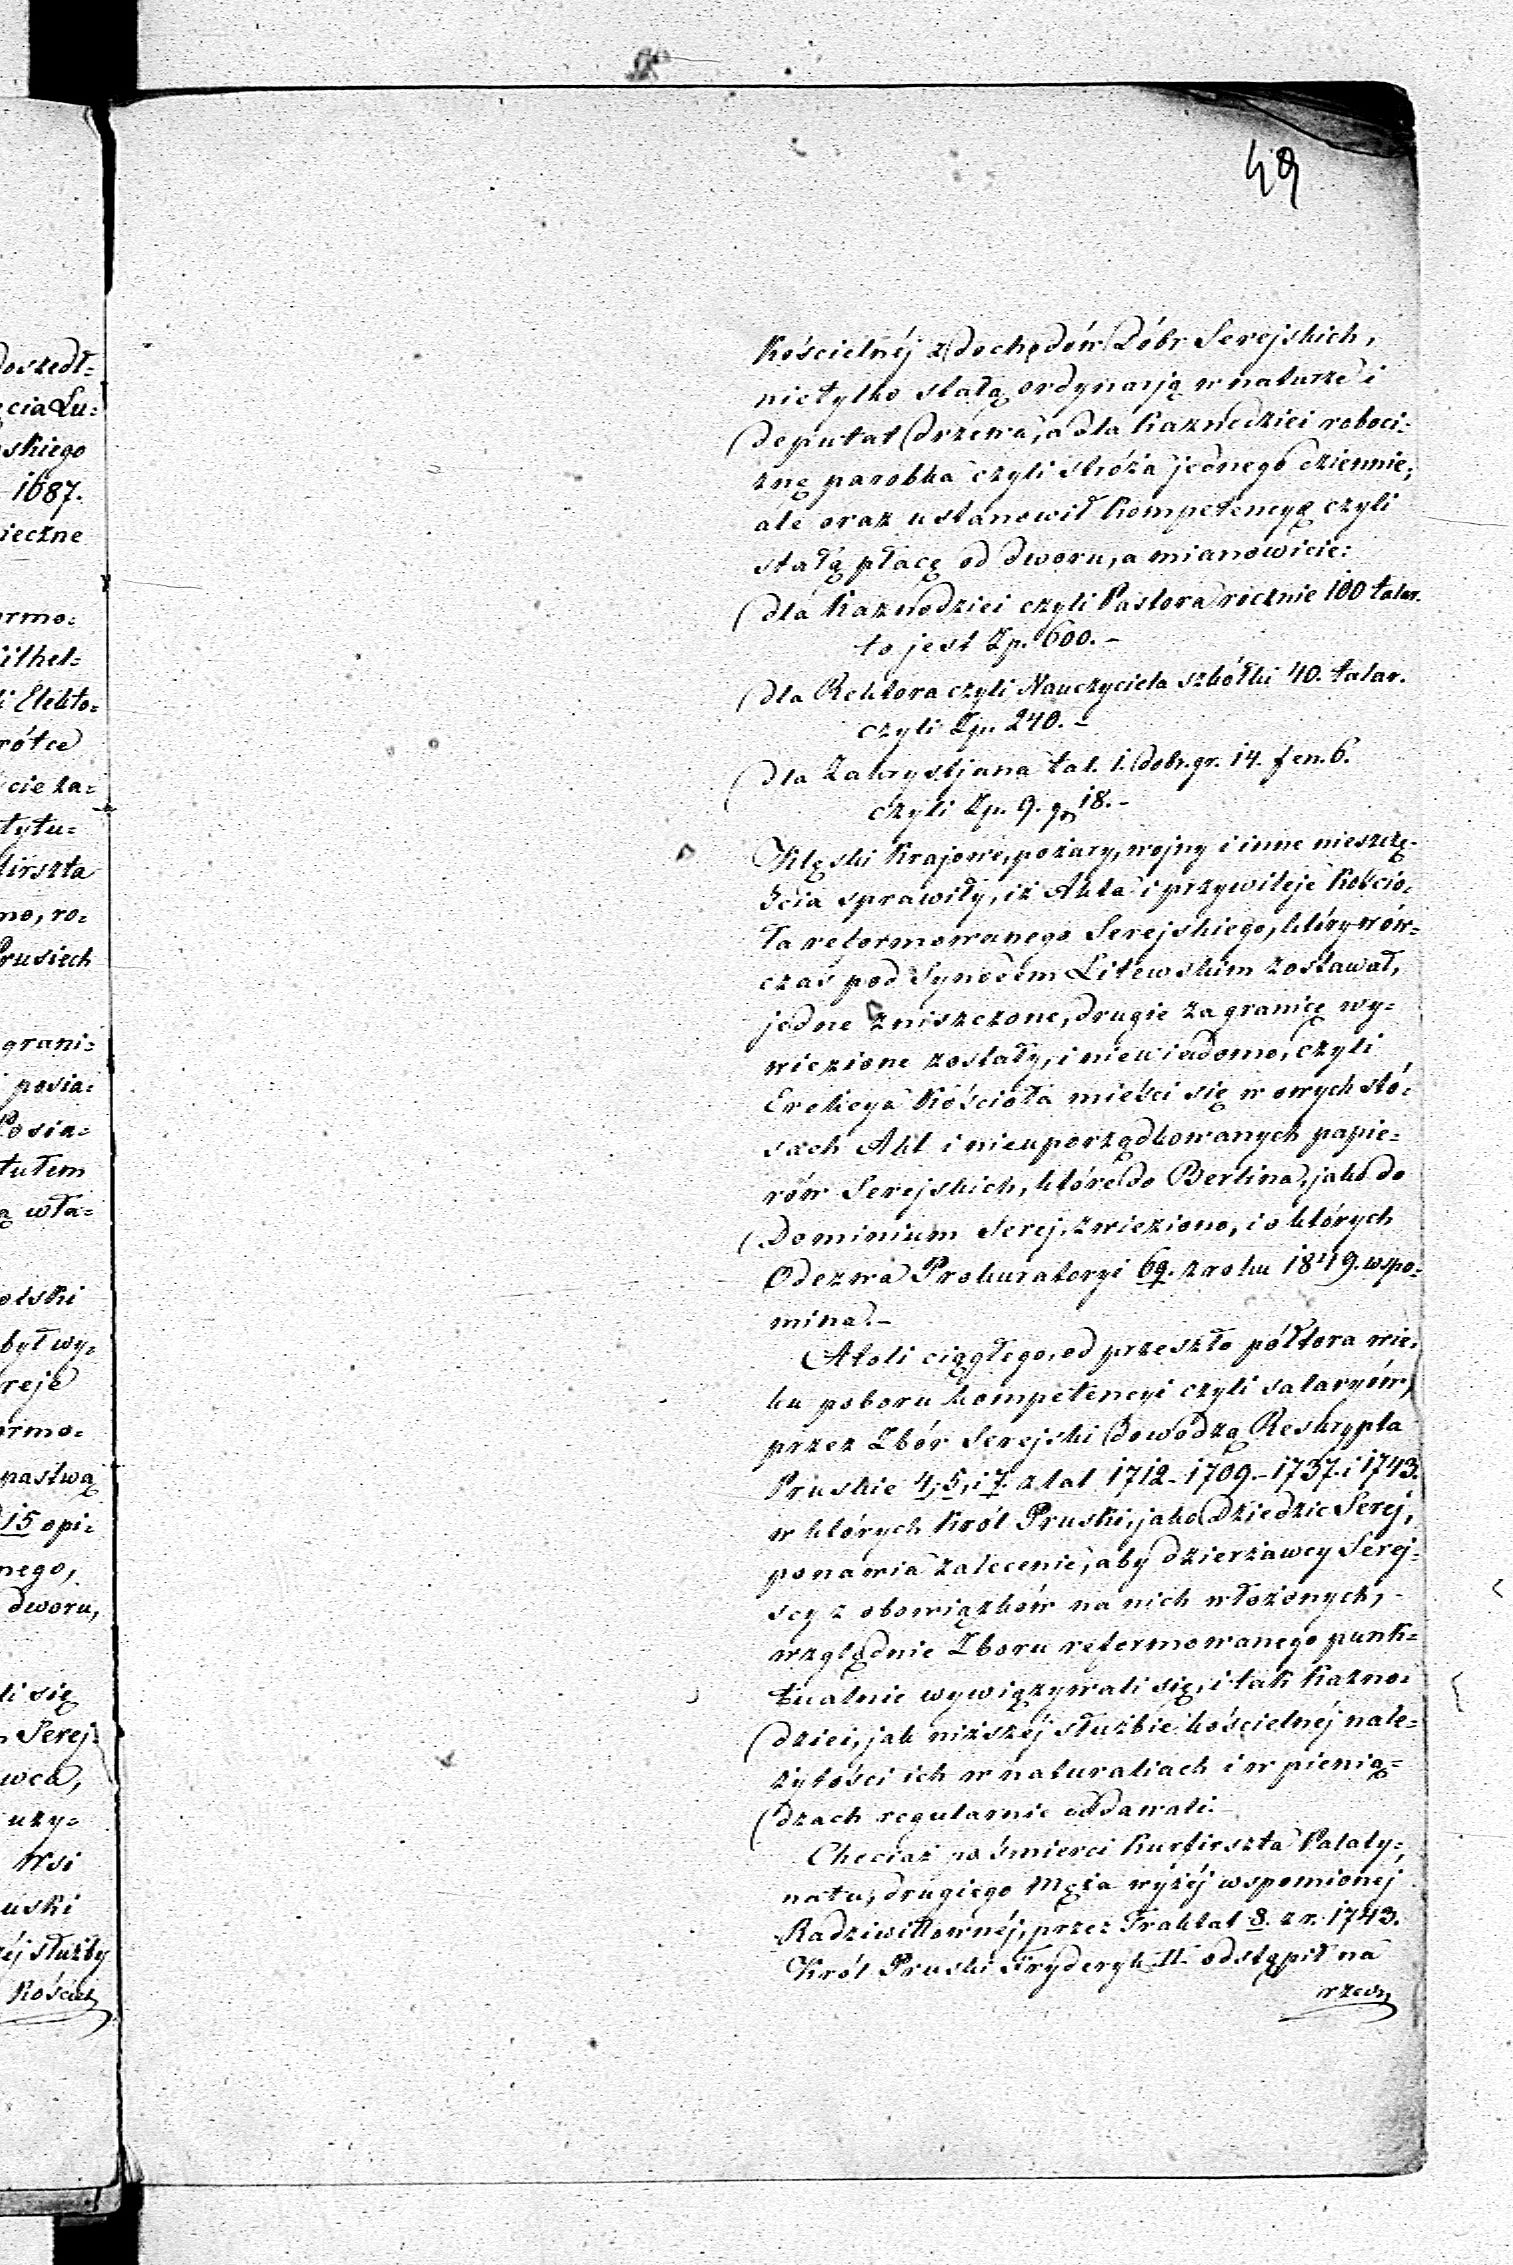 49
doszedł=
ęcia Lu=
skiego
1687.
ieczne
ormo=
ilhel=
i Elekto=
rótce
cie za=
tytu=
firszta
no, ro=
Prusiech
grani=
posia=
Posia=
tułem
ą wła=
olski
był wy=
reje
ormo=
pastwą
15 opi=
nego,
dworu,
li się
Serej=
wca,
uzy=
Wsi
uski
éj służby
Kościel
Kościelnéj z dochodów Dóbr Serejskich,
nietylko stałą ordynarją w naturze i
deputat drzewa, a dla Kaznodziei roboci=
znę parobka czyli stróża jednego dziennie,
ale oraz ustanowił Kompetencyę czyli
stałą płacę od dworu, a mianowicie:
dla Kaznodziei czyli Pastora rocznie 100 talar.
to jest Zp. 600.-
dla Rektora czyli Nauczyciela szkółki 40. talar.
czyli Zp. 240.-
dla Zakrystjana tal. 1. dobr. gr. 14. fen. 6.
czyli Zp. 9. gr 18.-
Klęski Krajowe, pożary, wojny i inne nieszczę=
ścia sprawiły, iż Akta i przywileje Kościo=
ła reformowanego Serejskiego, który wów=
czas pod Synodem Litewskim zostawał,
jedne zniszczone, drugie za granicę wy=
wiezione zostały, i niewiadomo, czyli
Erekcya Kościoła mieści się w owych stó=
sach Akt i nieuporządkowanych papie=
rów Serejskich, które do Berlina, jako do
Dominium Serej, zwieziono, i o których
Odezwa Prokuratoryi 69. z roku 1819. wspo=
mina.-
Atoli ciągłego, od przeszło półtora wie=
ku poboru kompetencyi czyli salaryów,
przez Zbór Serejski dowodzą Reskrypta
Pruskie 4, 5, i 7. z lat 1712 - 1709. - 1737. i 1743.
w których Król Pruski, jako Dziedzic Serej,
ponawia zalecenie, aby dzierżawcy Serej=
scy z obowiązków na nich włożonych,-
względnie Zboru reformowanego punk=
tualnie wywiązywali się, i tak Kazno=
dziei, jak niższéj służbie kościelnéj nale=
żytości ich w naturaliach i w pienią=
dzach regularnie oddawali.-
Chociaż po śmierci Kurfirszta Palaty=
natu, drugiego Męża wyżéj wspomionej
Radziwiłłownéj, przez Traktat 8. z r. 1743.
Król Pruski Fryderyk II. odstąpił na
rzecz